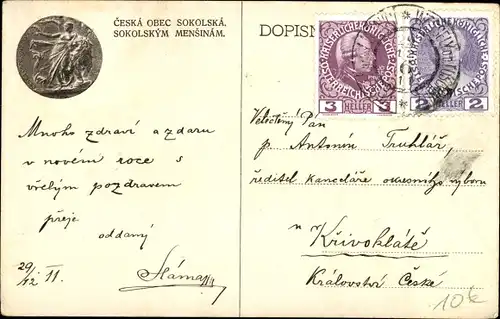 ČESKÁ OBEC SOKOLSKÁ.
SOKOLSKÝM MENŠINÁM.
DOPISN
KAISERLICHE KÖNIGLICHE
ÖSTERREICHISCHE POST
3 HELLER 3
2 HELLER 2
Mnoho zdraví a zdaru
v novém roce s
vřelým pozdravem
přeje
oddaný
29/12 11.
Veléctěný Pán
p. Antonín Truhlář,
ředitel kanceláře okresního výboru
u
Křivoklátě
Království České
10k